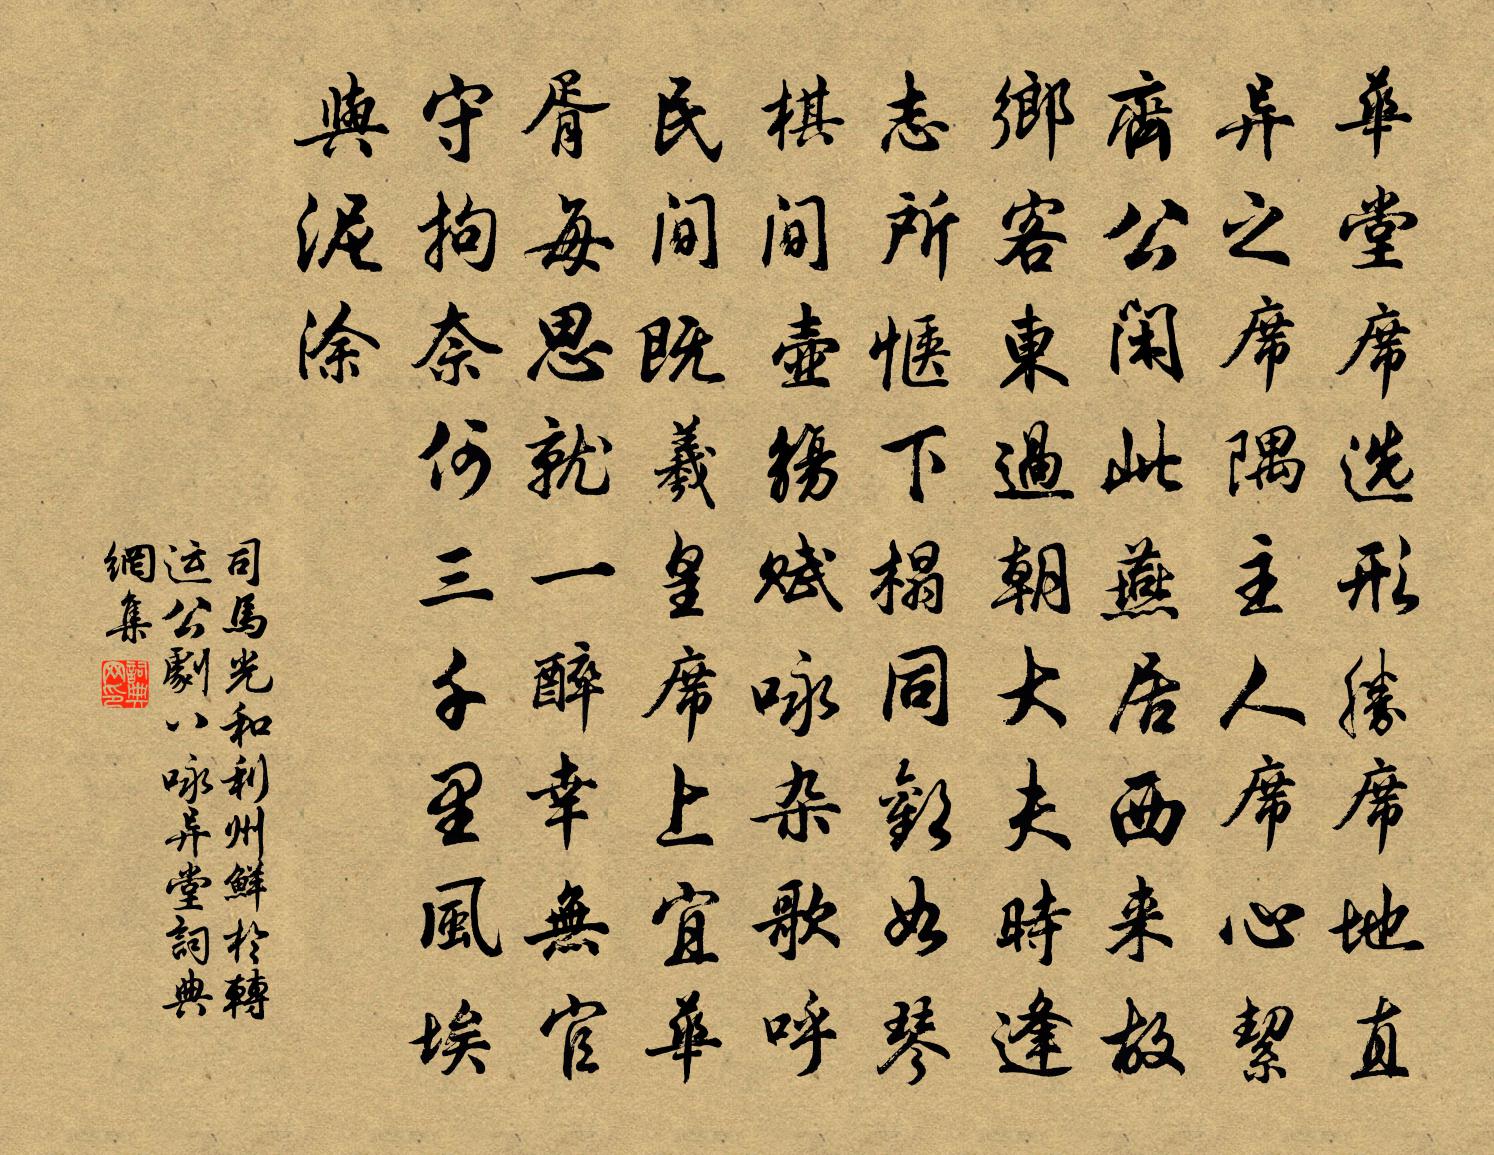 華堂席选形勝席地直
异之席隅主人席心絜
齊公闲此燕居西来故
鄉客東過朝大夫時逢
志所惬下榻同歡如琴
棋间壺觴赋咏杂歌呼
民间既羲皇席上宜華
胥每思就一醉幸無官
守拘奈何三千里風埃
與泥涂
司馬光和利州鮮於轉
运公劇八咏异堂詞典
網集
詞典网